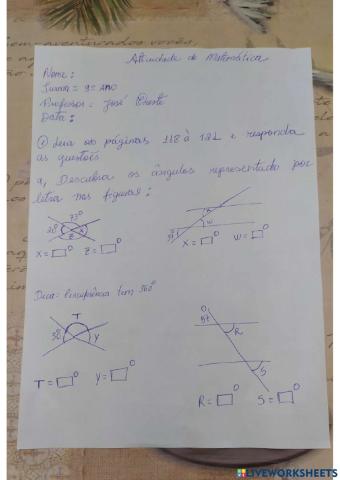 Atividade de Matemática
Nome:
Turma = 9º Ano
Professor: José
Data:
① Leia as páginas 118 à 121 e responda
as questões
a, Descubra os ângulos representado por
letra nas figuras:
73°
28 X
Z
W
X = □° Z = □°
X = □° W = □°
Dica: Circunferência tem 360°
T
Y
T = □° Y = □°
R
S
R = □° S = □°
LIVEWORKSHEETS